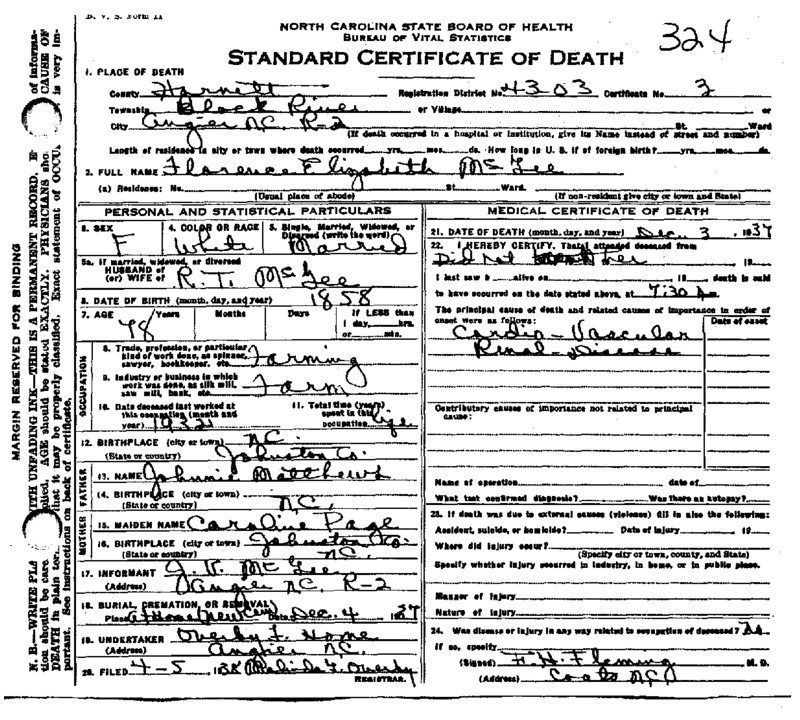 D. V. S. Form 11
NORTH CAROLINA STATE BOARD OF HEALTH
BUREAU OF VITAL STATISTICS
324
STANDARD CERTIFICATE OF DEATH
1. PLACE OF DEATH
County Harnett Registration District No. 43-03 Certificate No. 3
Township Black River or Village or
City Angier N.C. R-2 St. Ward
(If death occurred in a hospital or institution, give its Name instead of street and number)
Length of residence in city or town where death occurred yrs. mos. ds. How long in U. S. if of foreign birth? yrs. mos. ds.
2. FULL NAME Florence Elizabeth McGee
(a) Residence: No. St. Ward.
(Usual place of abode) (If non-resident give city or town and State)
PERSONAL AND STATISTICAL PARTICULARS
3. SEX 4. COLOR OR RACE 5. Single, Married, Widowed, or Divorced (write the word)
F White Married
5a. If married, widowed, or divorced
HUSBAND of
(or) WIFE of R. T. McGee
6. DATE OF BIRTH (month, day, and year) 1858
7. AGE Years Months Days If LESS than
78 1 day, hrs.
or min.
OCCUPATION
8. Trade, profession, or particular kind of work done, as spinner, sawyer, bookkeeper, etc. Farming
9. Industry or business in which work was done, as silk mill, saw mill, bank, etc. Farm
10. Date deceased last worked at this occupation (month and year) 1932
11. Total time (years) spent in this occupation life
12. BIRTHPLACE (city or town) N.C.
(State or country) Johnston Co.
FATHER
13. NAME Johnnie Matthews
14. BIRTHPLACE (city or town)
(State or country) N.C.
MOTHER
15. MAIDEN NAME Caroline Page
16. BIRTHPLACE (city or town) Johnston Co.
(State or country) N.C.
17. INFORMANT J. V. McGee
(Address) Angier N.C. R-2
18. BURIAL, CREMATION, OR REMOVAL
Place At Home (New Cem) Date Dec. 4 1937
19. UNDERTAKER Overby F. Home
(Address) Angier N.C.
20. FILED 4-5 1938 Overby
REGISTRAR.
MEDICAL CERTIFICATE OF DEATH
21. DATE OF DEATH (month, day, and year) Dec. 3, 1937
22. I HEREBY CERTIFY, That I attended deceased from
Did not her 19
I last saw h alive on 19 death is said
to have occurred on the date stated above, at 7:30 m.
The principal cause of death and related causes of importance in order of onset were as follows:
Date of onset
Cardio-Vascular
Renal-Disease
Contributory causes of importance not related to principal cause:
Name of operation date of
What test confirmed diagnosis? Was there an autopsy?
23. If death was due to external causes (violence) fill in also the following:
Accident, suicide, or homicide? Date of injury 19
Where did injury occur?
(Specify city or town, county, and State)
Specify whether injury occurred in industry, in home, or in public place.
Manner of injury
Nature of injury
24. Was disease or injury in any way related to occupation of deceased? No
If so, specify
(Signed) F. H. Fleming M. D.
(Address) Coats N.C.
MARGIN RESERVED FOR BINDING
N. B.—WRITE PLA WITH UNFADING INK—THIS IS A PERMANENT RECORD. E of informa-
tion should be care plied. AGE should be stated EXACTLY. PHYSICIANS sho CAUSE OF
DEATH in plain ter that it may be properly classified. Exact statement of OCCU is very im-
portant. See instructions on back of certificate.